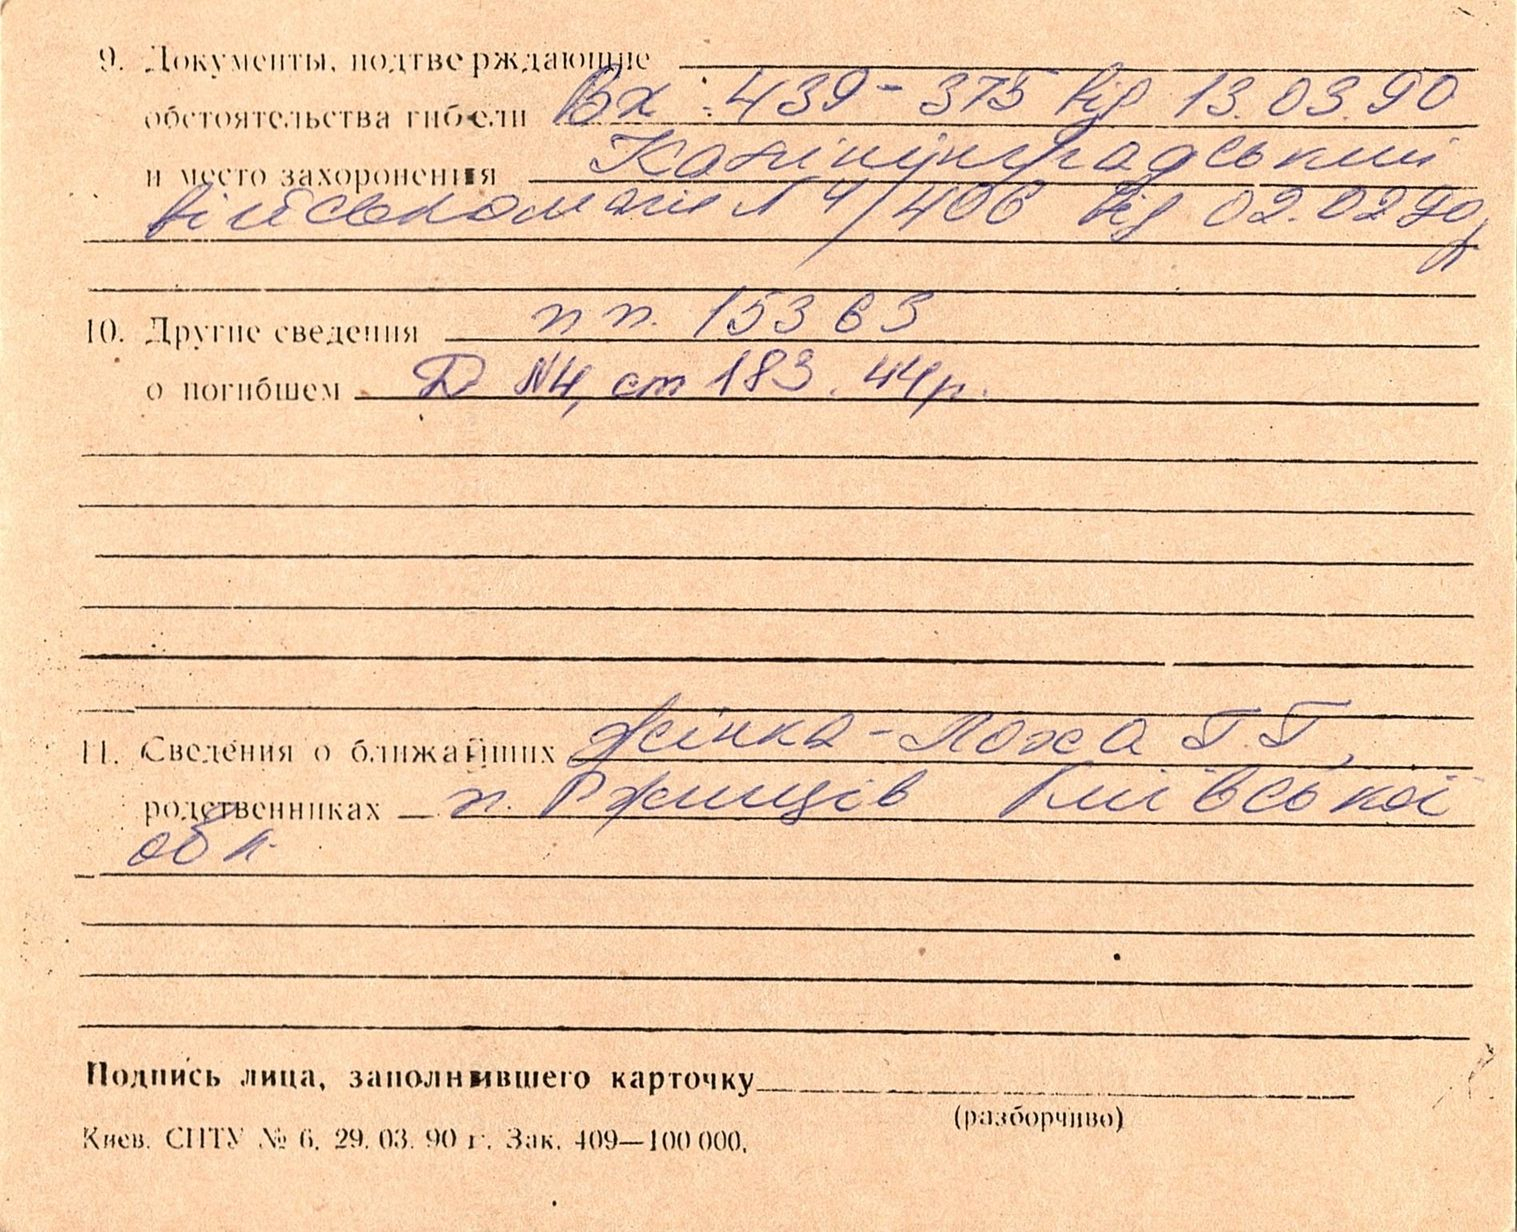 9. Документы, подтверждающие
обстоятельства гибели Вх. 439-375 від 13.03.90
и место захоронения Калінінградський
військомат N 4/406 від 02.02.90р
10. Другие сведения пп. 15363
о погибшем Д N4, ст 183. 44р.
11. Сведения о ближайших Жінка - Лоха Г. Г.,
родственниках п. Ржищів Київської
обл.
Подпись лица, заполнившего карточку
(разборчиво)
Киев. СПТУ № 6. 29. 03. 90 г. Зак. 409—100 000.